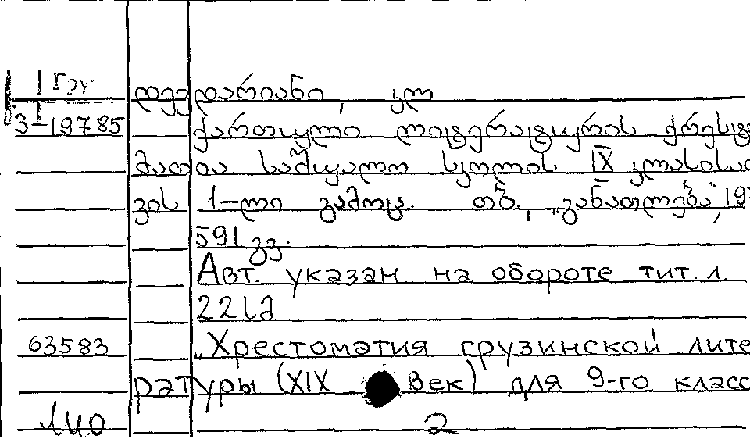 Гру
3-19785
ქართული ლიტერატურის ქრესტ
მათია საშუალო სკოლის IX კლასისა
ვის 1-ლი გამოც. თბ., „განათლება", 19
591 გვ.
Авт. указан на обороте тит. л.
63583 „Хрестоматия грузинской лите
ратуры (XIX век) для 9-го класс
140 2